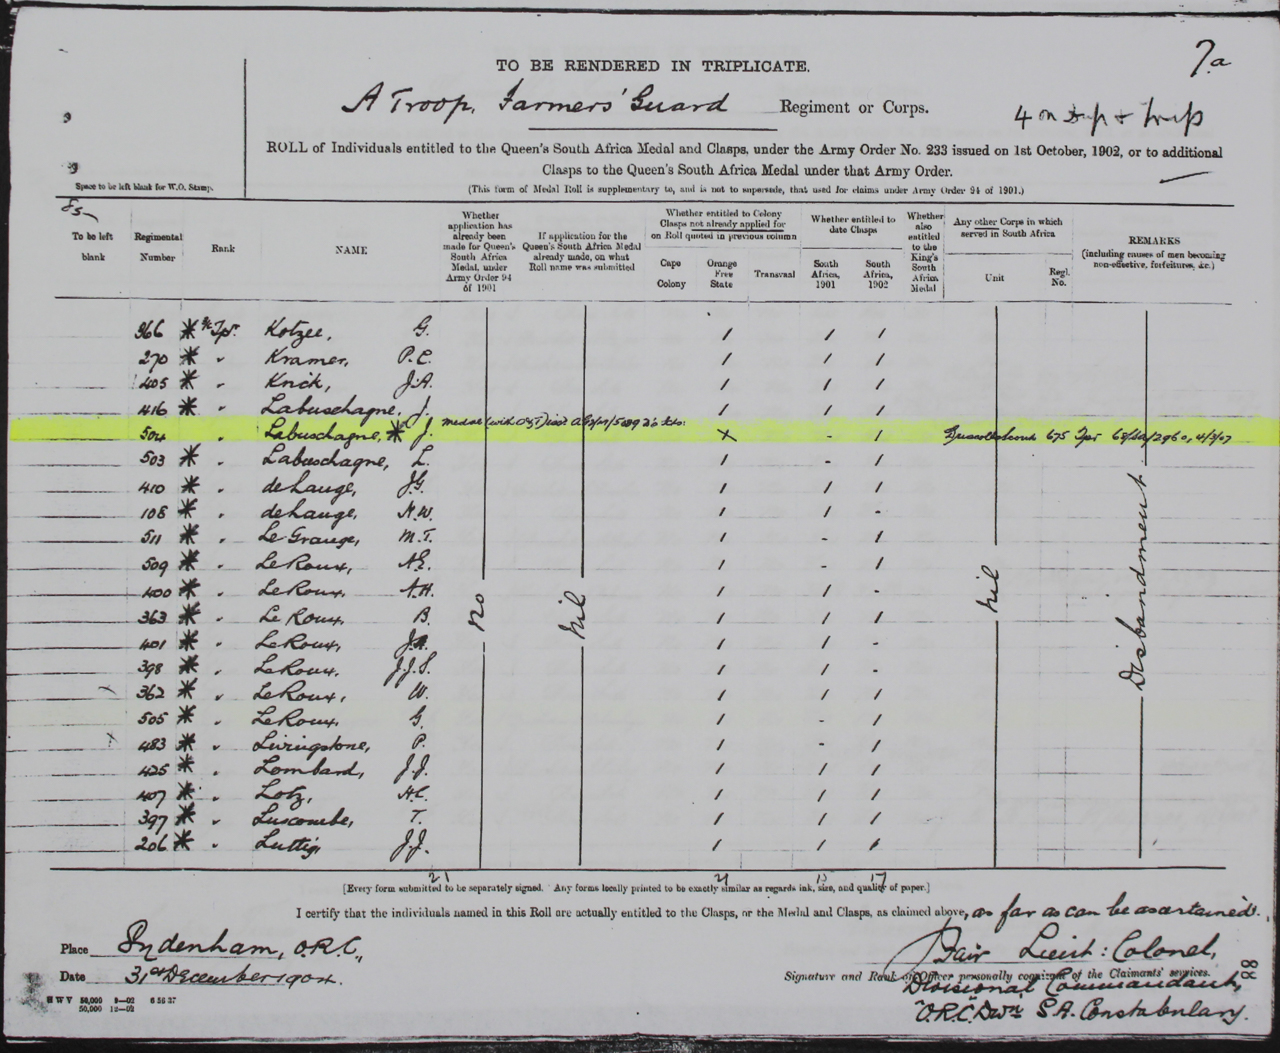 7.a
TO BE RENDERED IN TRIPLICATE.
A Troop, Farmers' Guard Regiment or Corps.
4 on
ROLL of Individuals entitled to the Queen's South Africa Medal and Clasps, under the Army Order No. 233 issued on 1st October, 1902, or to additional
Clasps to the Queen's South Africa Medal under that Army Order.
(This form of Medal Roll is supplementary to, and is not to supersede, that used for claims under Army Order 94 of 1901.)
Space to be left blank for W.O. Stamp.
To be left blank
Regimental Number
Rank
NAME
Whether application has already been made for Queen's South Africa Medal, under Army Order 94 of 1901
If application for the Queen's South Africa Medal already made, on what Roll name was submitted
Whether entitled to Colony Clasps not already applied for on Roll quoted in previous column
Cape Colony
Orange Free State
Transvaal
Whether entitled to date Clasps
South Africa, 1901
South Africa, 1902
Whether also entitled to the King's South Africa Medal
Any other Corps in which served in South Africa
Unit
Regl. No.
REMARKS
(including causes of men becoming non-effective, forfeitures, &c.)
366 * Tpr. Kotzee, G. / / /
270 * " Kramer, P.C. / / /
405 * " Krick, J.A. / / /
416 * " Labuschagne, J. / / /
504 " Labuschagne, * J. x - / 675 Tpr 4/3/07
503 * " Labuschagne, L. / - /
410 * " de Lange, J.G. / / /
108 * " de Lange, N.W. / / -
511 * " Le Grange, M.T. / - /
509 * " Le Roux, A.E. / - /
400 * " Le Roux, A.H. / / -
363 * " Le Roux, B. / / /
401 * " Le Roux, J.A. / / -
398 * " Le Roux, J.J.S. / / -
x 362 * " Le Roux, W. / / /
505 * " Le Roux, G. / - /
x 483 * " Livingstone, P. / - /
425 * " Lombard, J.J. / / /
407 * " Lotz, H.C. / / /
397 * " Luscombe, T. / / /
206 * " Luttig, J.J. / / /
no
nil
nil
Disbandment
21 21 15 17
[Every form submitted to be separately signed. Any forms locally printed to be exactly similar as regards ink, size, and quality of paper.]
I certify that the individuals named in this Roll are actually entitled to the Clasps, or the Medal and Clasps, as claimed above, as far as can be ascertained.
Place Sydenham, O.R.C.,
Date 31st December 1904.
Fair Lieut: Colonel,
Signature and Rank of Officer personally cognizant of the Claimants' services.
Divisional Commandant,
"O.R.C." Divn. S.A. Constabulary.
88
H W V 50,000 9—02 6 56 37
50,000 12—02